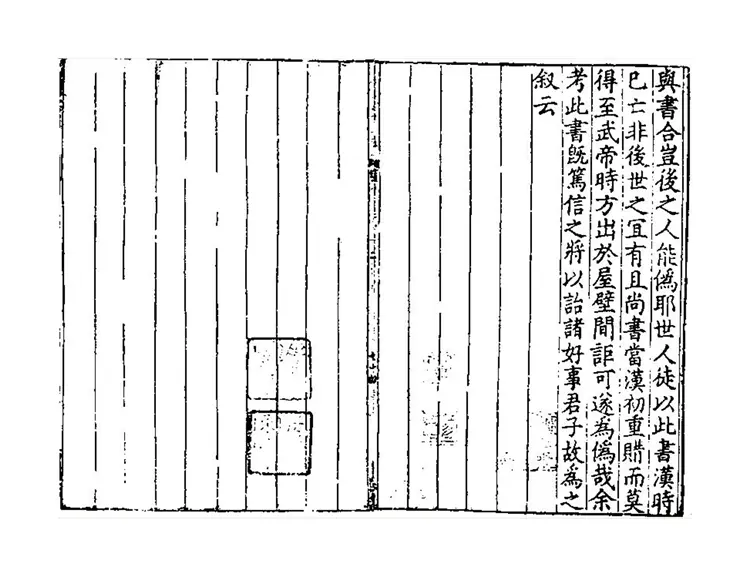 與書合豈後之人能僞耶世人徒以此書漢時
已亡非後世之冝有且尚書當漢初重購而莫
得至武帝時方出於屋壁間詎可遂為僞哉余
考此書既篤信之將以詒諸好事君子故為之
叙云